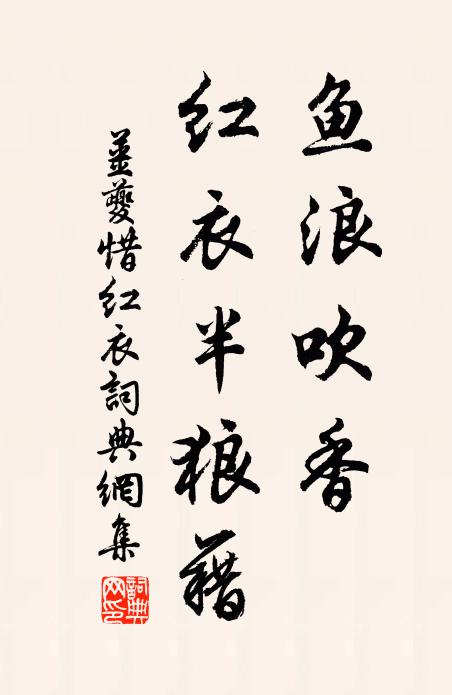 鱼浪吹香
红衣半狼藉
姜夔惜红衣詞典網集
詞典
网印